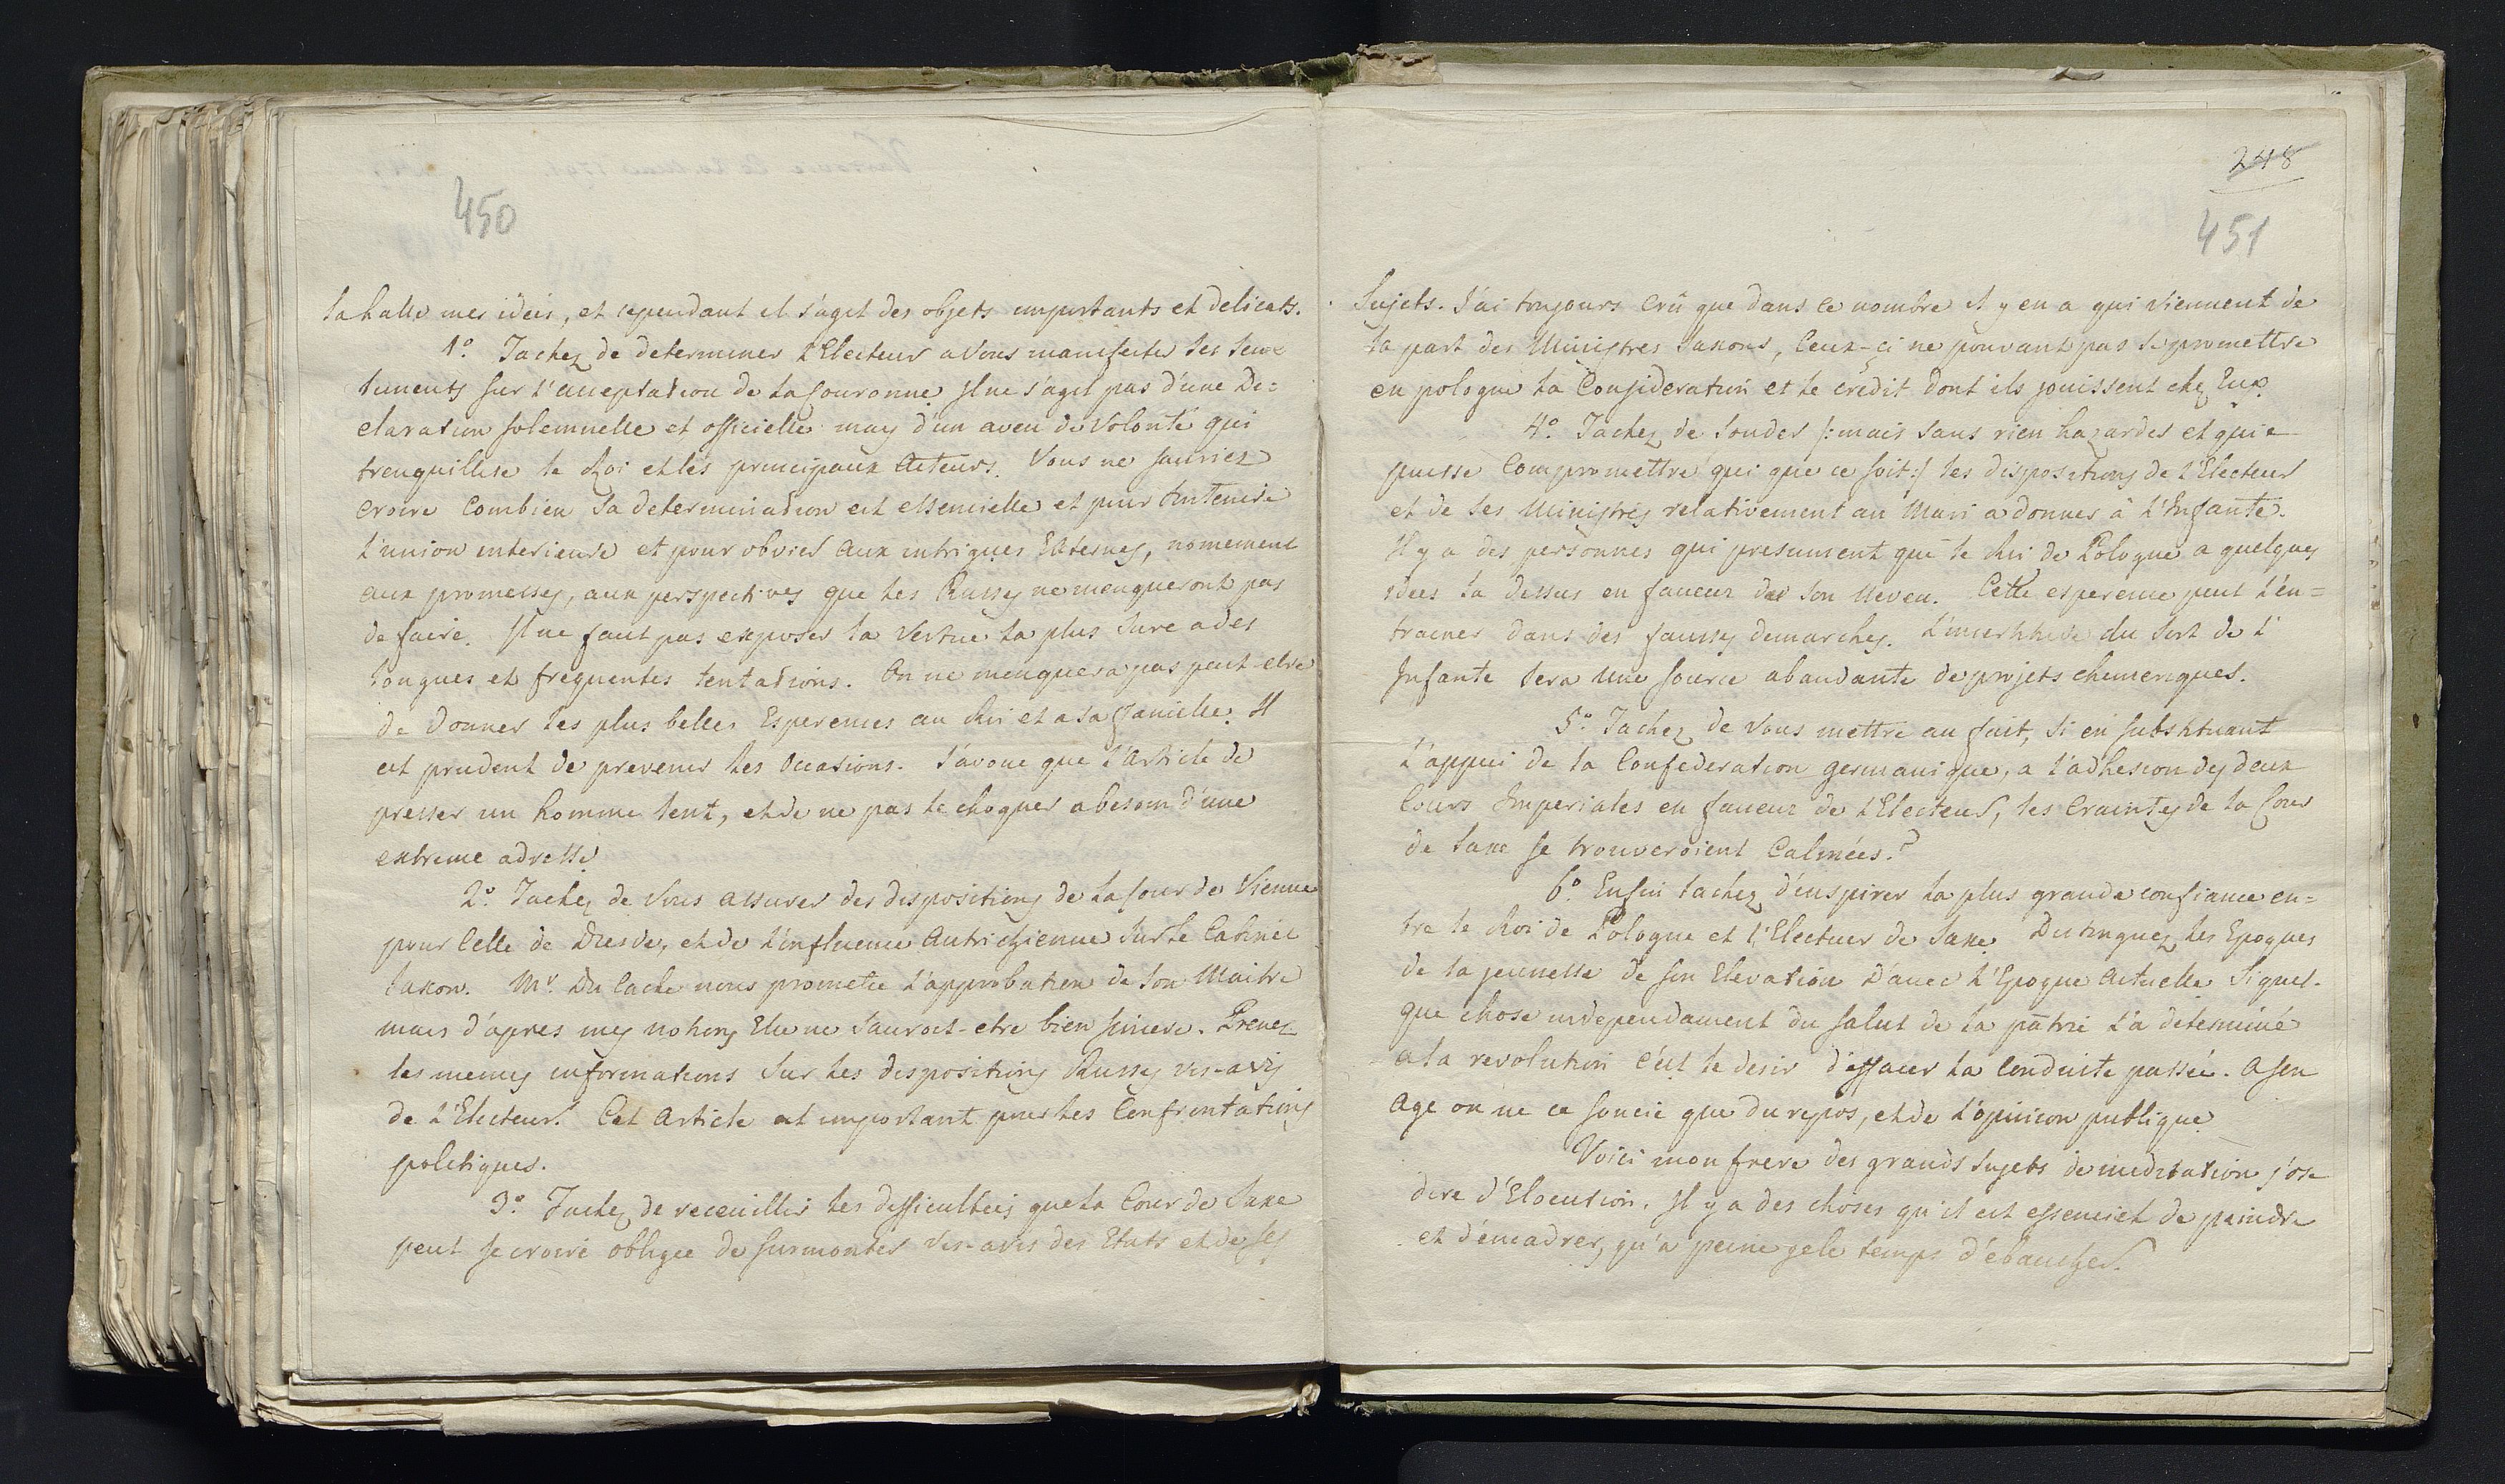 450
la hatte mes idées, et cependant il s'agit des objets importants et delicats.
1º. Tachez de determiner l'Electeur a vous manifester ses sen=
timents sur l'acceptation de la Couronne. Il ne s'agit pas d'une De=
claration solemnelle et officielle may d'un aveu de volonté qui
trenquillise le Roi et les principaux Acteurs. Vous ne sauriez
croire Combien sa determination est essencielle et pour
l'union interieure et pour obvier aux intrigues Externes, nomement
aux promesses, aux perspectives que les Russes ne menqueront pas
de faire. Il ne faut pas exposer la vertue la plus sure a des
longues et frequentes tentations. On ne menquera pas peut-etre
de donner les plus belles Esperences au Roi et a sa famielle. Il
est prudent de prevenir les Occasions. J'avoue que l'Article de
presser un homme lent, et de ne pas le choquer a besoin d'une
extreme adresse
2º. Tachez de vous assurer des dispositions de la Cour de Vienne
pour Celle de Dresde, et de l'influence Autrichienne sur le Cabinet
Saxon. Mr. Du Cache nous promette l'approbation de son Maitre
mais d'apres mes notions Elle ne sauroit-etre bien sincere. Prenez
les memes informations sur les dispositions Russes vis-avis
de l'Electeur. Cet Article est important pour les Confrontations
politiques.
3º. Tachez de receuillir les difficultées que la Cour de Saxe
peut se croire obligée de surmonter vis-avis des Etats et de ses
248
451
Sujets. J'ai toujours crû que dans ce nombre il y en a qui viennent de
la part des Ministres Saxons, Ceux-çi ne pouvant pas se promettre
en pologne la Consideration et le credit dont ils jouissent chez Eux.
4º. Tachez de sonder /: mais sans rien hazarder et qui
puisse Compromettre qui que ce soit :/ les dispositions de l'Electeur
et de ses Ministres relativement au Mari a donner à l'Infante.
Il y a des personnes qui presument que le Roi de Pologne a quelques
idées la dessus en faveur de son Neveu. Cette esperence peut l'en=
trainer dans des fausses demarches. L'incertitude du sort de l'
Infante sera une source abandante de projets chimeriques.
5º. Tachez de vous mettre au fait, si en substituant
l'appui de la Confederation germanique, a l'adhesion des deux
Cours Imperiales en faveur de l'Electeur, les Craintes de la Cour
de Saxe se trouveroient Calmées.?
6º. Enfin tachez d'inspirer la plus grande confiance en=
tre le Roi de Pologne et l'Electuer de Saxe. Distinguez les Epoques
de la jeunesse de son Elevation d'avec l'Epoque Actuelle. Si quel-
que chose independament du salut de la patrie l'a determiné
a la revolution c'est le desir d'effacer la Conduite passée. A son
age on ne ce soucie que du repos, et de l'opinion publique
Voici mon frere des grands sujets de meditation j'ose
dire d'Elocution. Il y a des choses qu'il est essenciel de peindre
et d'encadrer, qu'a peine ge le temps d'ébaucher.